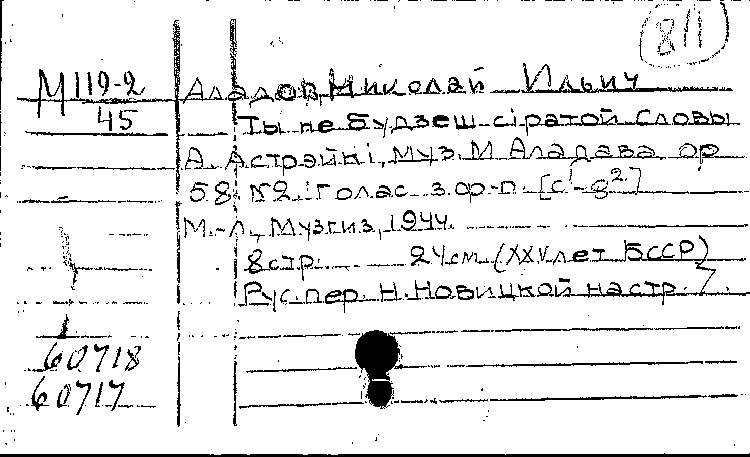 8/1
М119-2
45
Аладов, Николай Ильич
Ты не будзеш сіратой Словы
А. Астрэйкі, муз. М Аладава. ор
58. №2. Голас з ф-п. [c'-g²]
М.-Л., Музгиз, 1944.
8стр. 24см (XXV лет БССР)
Рус.пер. Н. Новицкой на стр. 7.
60718
60717